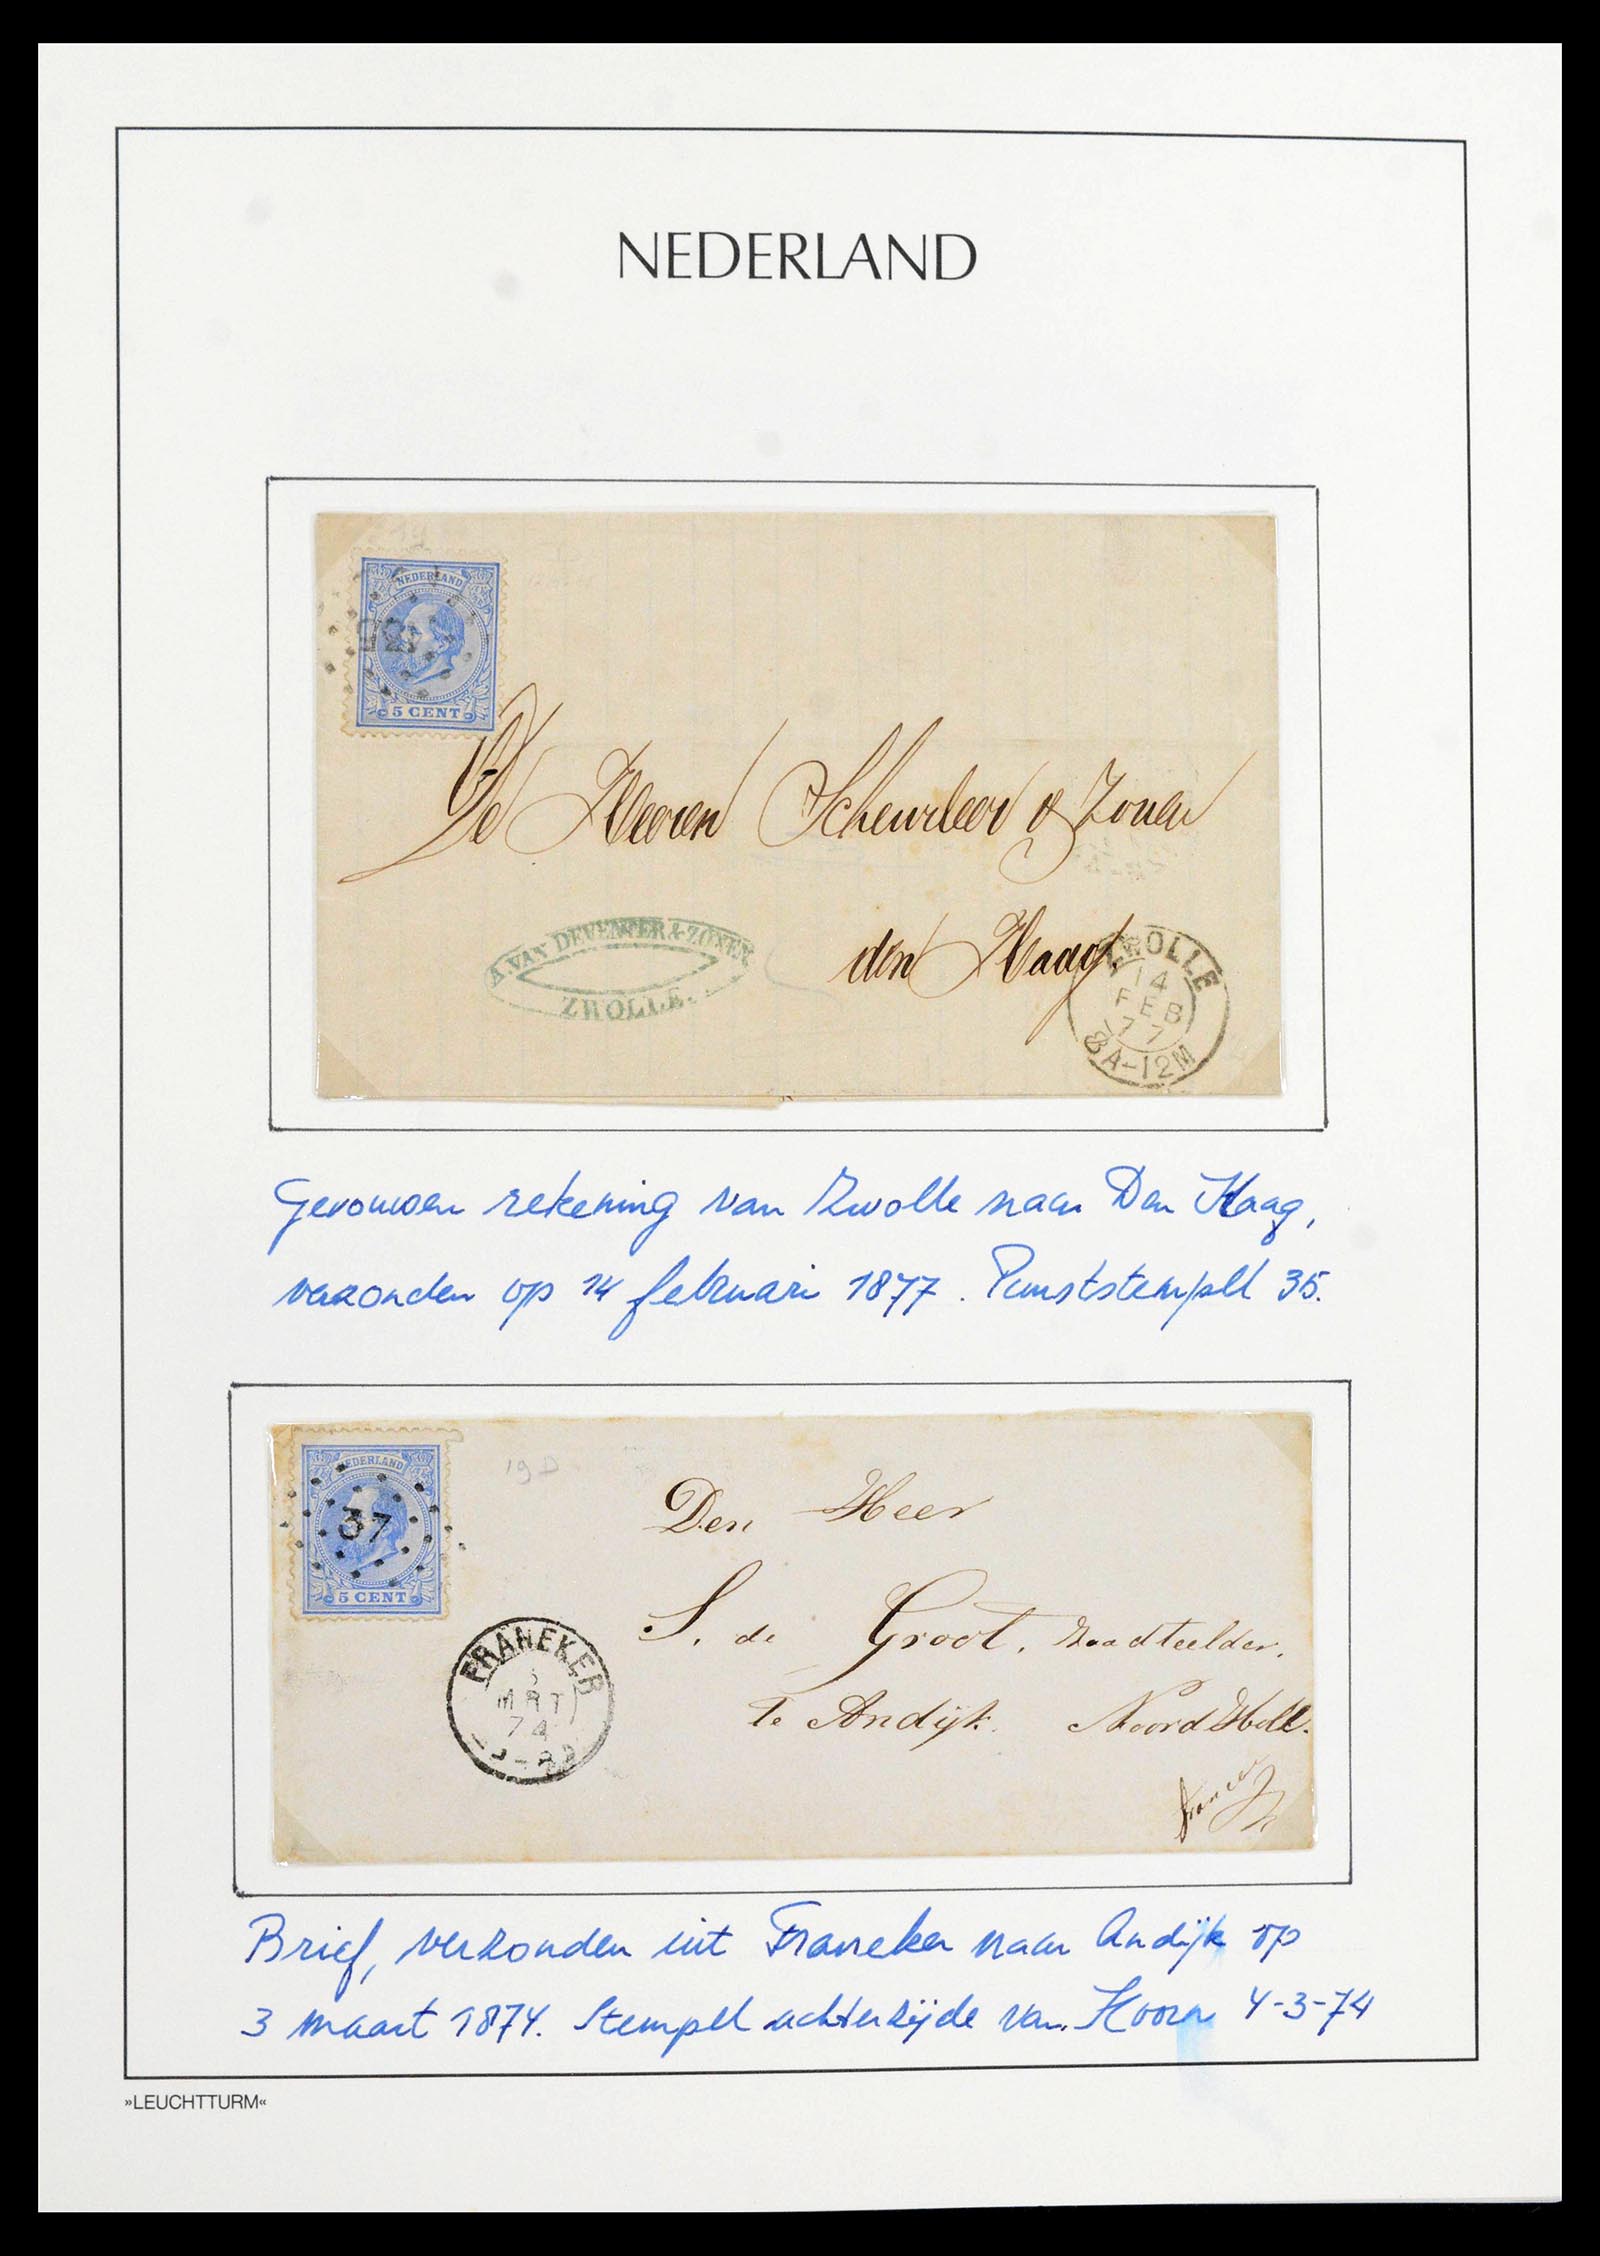 NEDERLAND
NEDERLAND
5 CENT
De Heeren Scheurleer & Zonen
den Haag.
A. VAN DEVENTER & ZONEN
ZWOLLE.
ZWOLLE
14
FEB
77
8A-12M
Gevouwen rekening van Zwolle naar Den Haag,
verzonden op 14 februari 1877. Puntstempel 35.
NEDERLAND
37
5 CENT
19D
Den Heer
S. de Groot, Zaadteelder.
Te Andijk. Noord Holl.
franco
FRANEKER
3
MRT
74
Brief, verzonden uit Franeker naar Andijk op
3 maart 1874. Stempel achterzijde van Hoorn 4-3-74
»LEUCHTTURM«